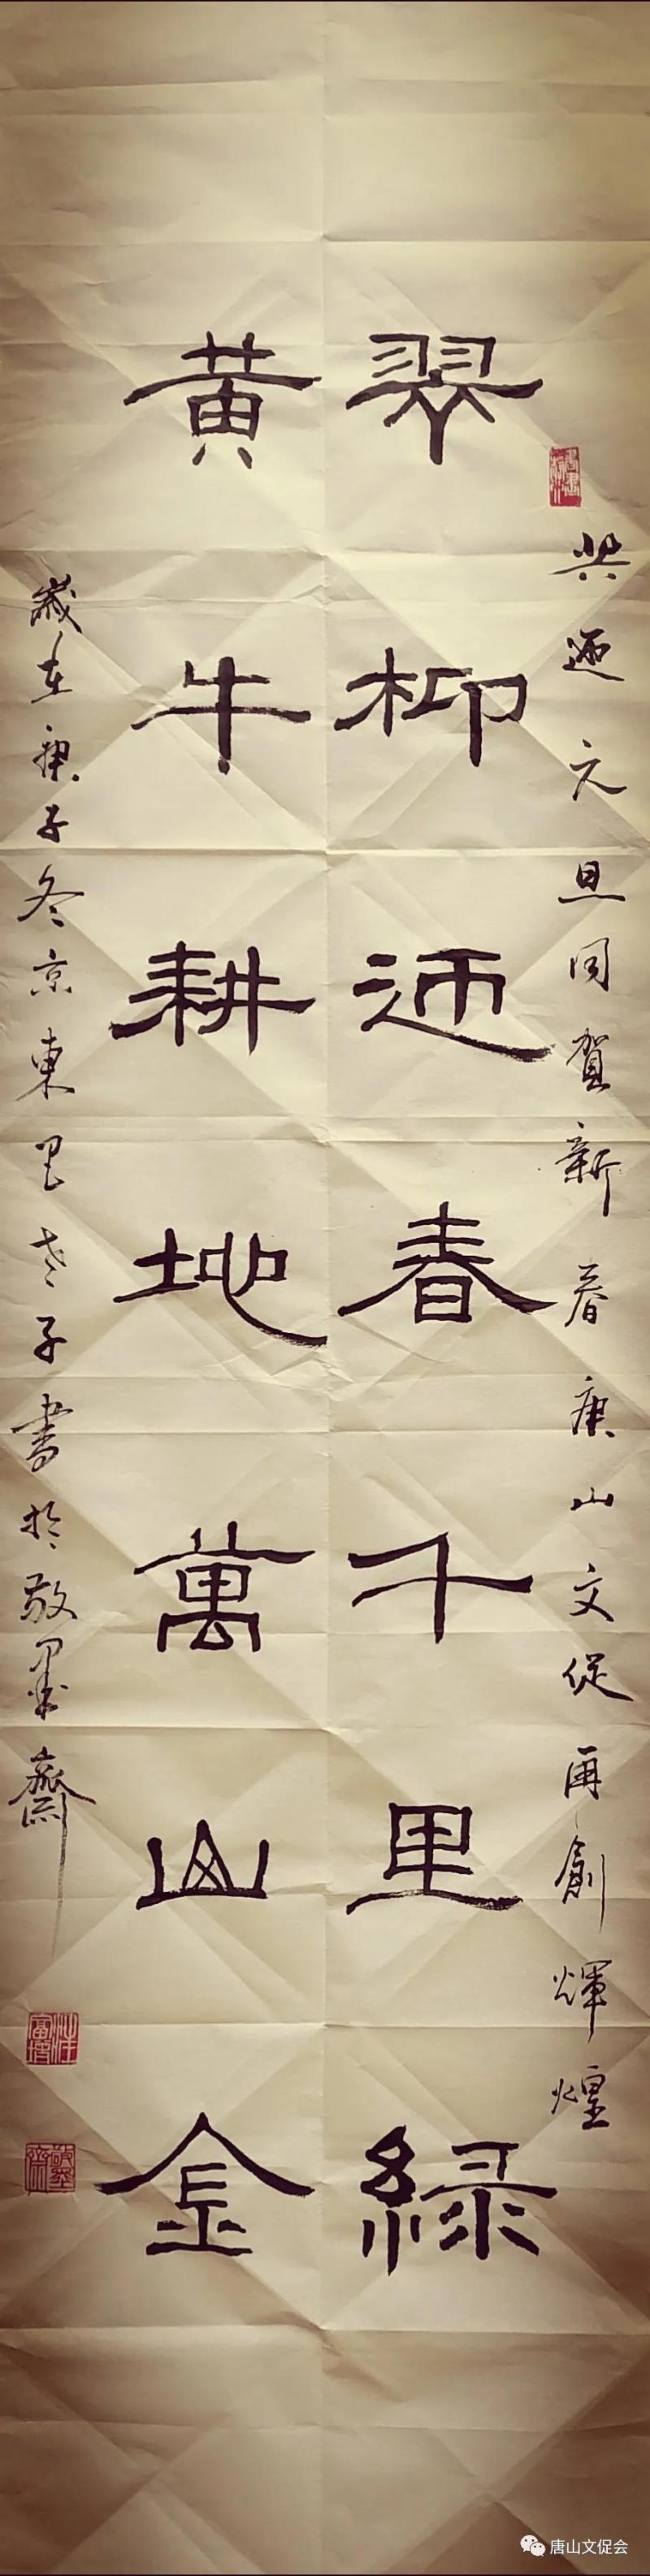 共迎元旦同贺新春唐山文促再創輝煌
翠柳迎春千里緑
黄牛耕地萬山金
歲在庚子冬京東里老子書於敬墨齋
唐山文促会